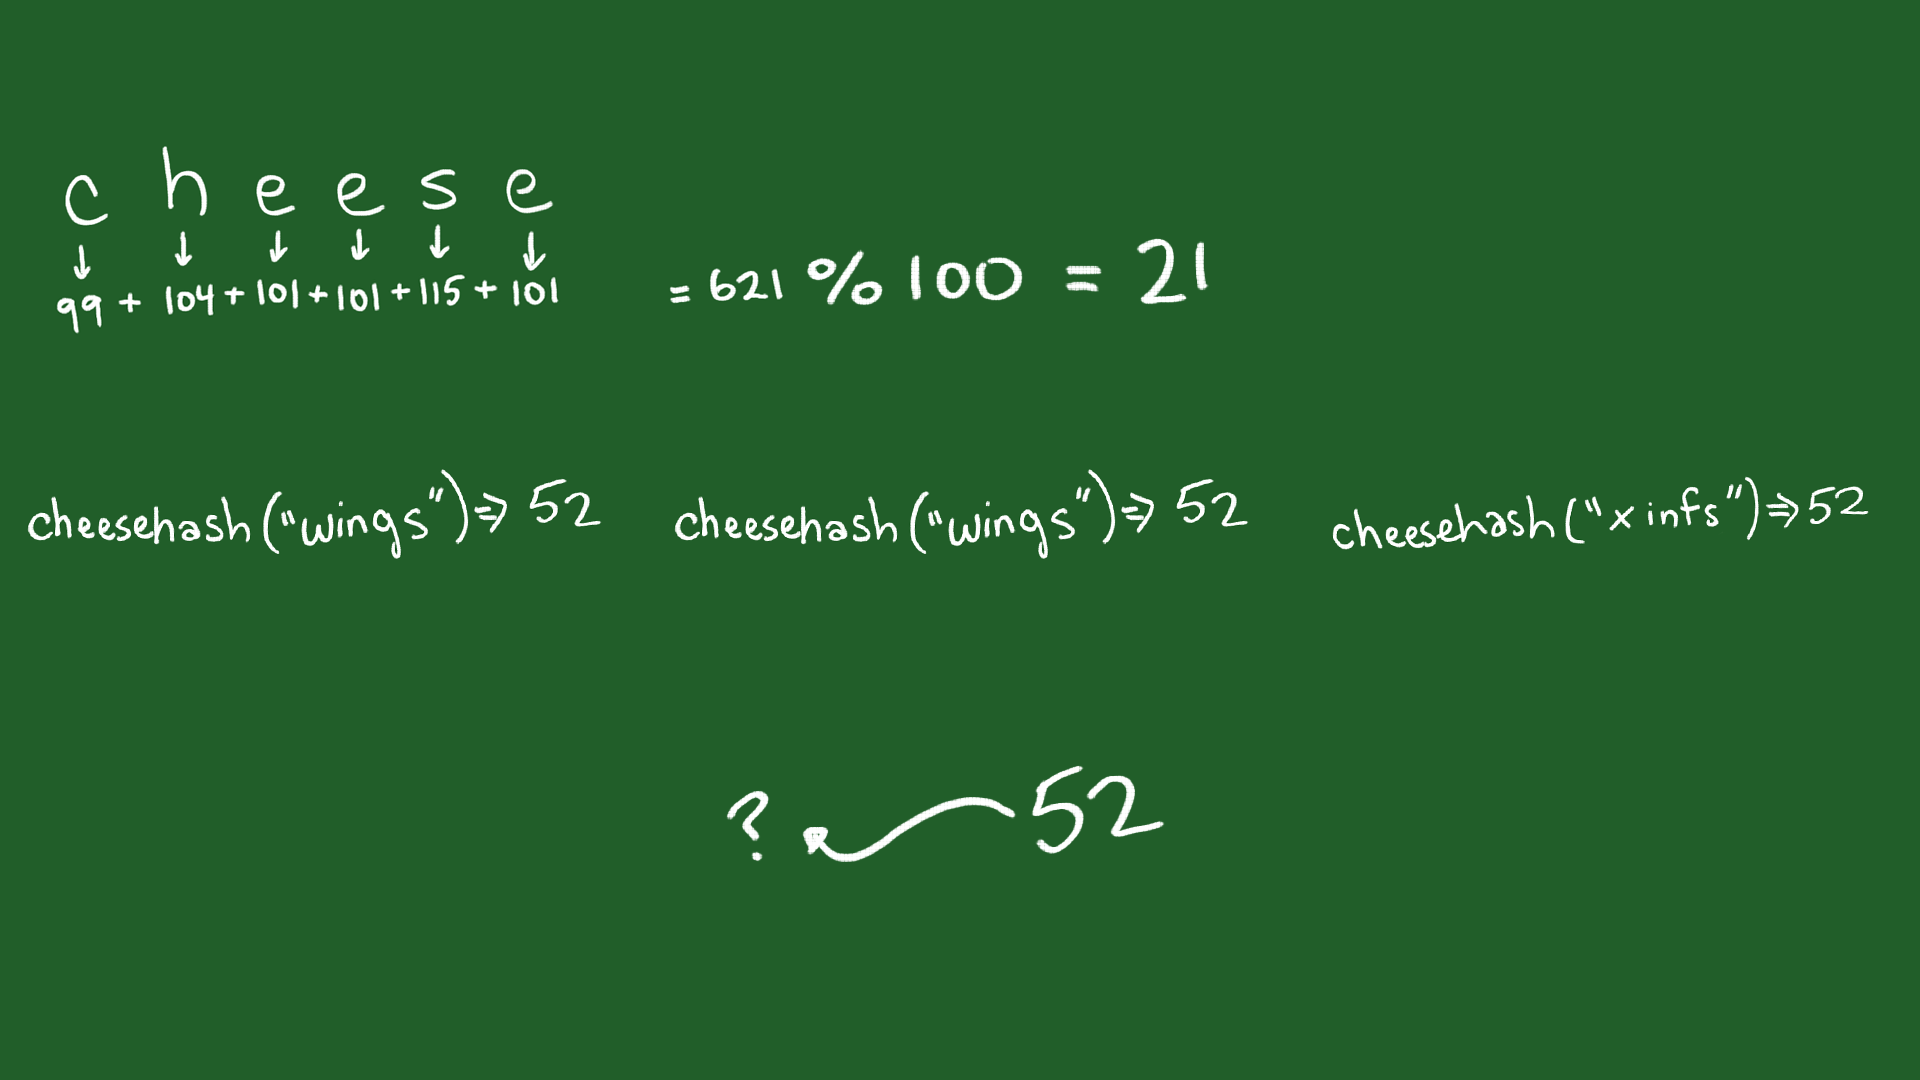 c h e e s e
99 + 104 + 101 + 101 + 115 + 101 = 621 % 100 = 21
cheesehash("wings") => 52 cheesehash("wings") => 52 cheesehash("xinfs") => 52
? 52